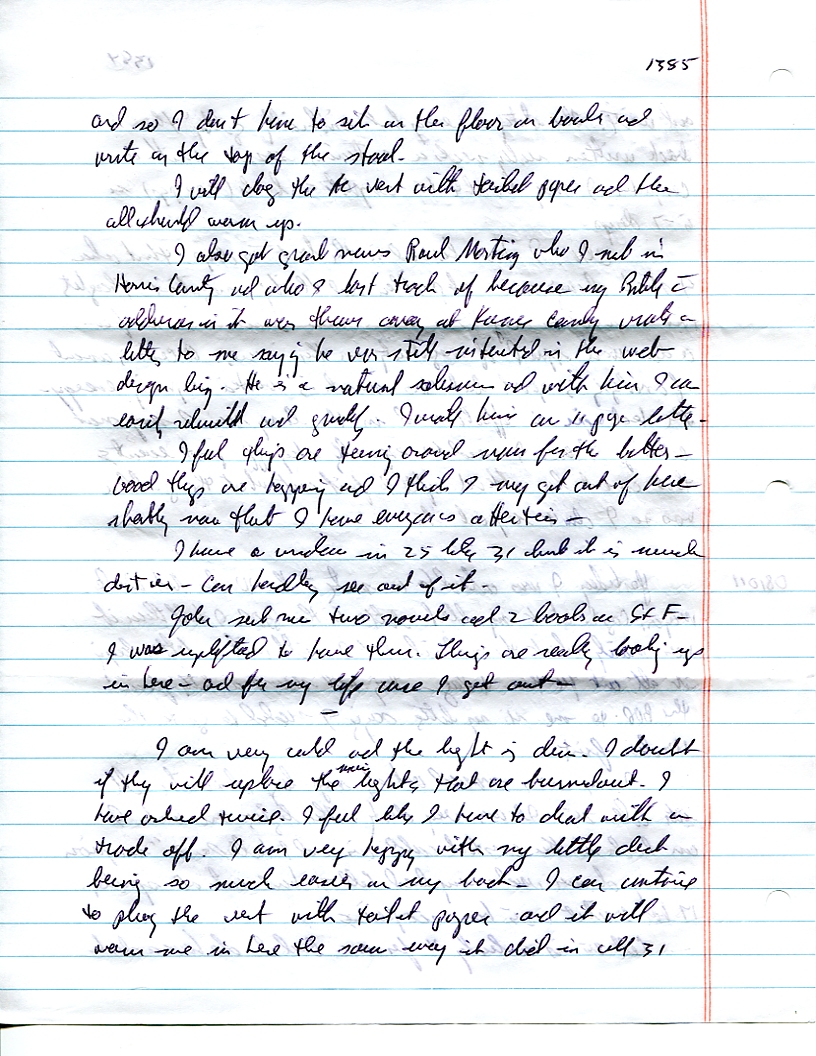 1385
and so I don't have to sit on the floor on books and
write on the top of the stool.
I will clog the AC vent with toilet paper and then
all should warm up.
I also got great news Raul who I met in
Harris County and who I lost track of because my Bible
addresses in it was thrown away at County wrote a
letter to me saying he was still interested in the web
design biz. He is a natural salesman and with him I can
easily rebuild and quickly. I wrote him an 11 page letter.
I feel things are turning around now for the better -
Good things are happening and I think I may get out of here
shortly now that I have everyones attention -
I have a window in 25 like 31 but it is much
dirtier - can hardly see out of it.
John sent me two novels and 2 books on
I was uplifted to have them. Things are really looking up
in here - and for my life once I get out -
I am very cold and the light is dim. I doubt
if they will replace the main lights that are burned out. I
have asked twice. I feel like I have to deal with a
trade off. I am very happy with my little desk
being so much easier on my back - I can continue
to plug the vent with toilet paper and it will
warm me in here the same way it did in cell 31